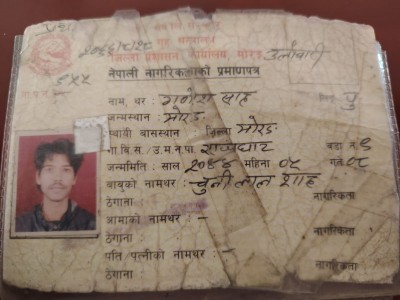 गृह मन्त्रालय
जिल्ला प्रशासन कार्यालय, मोरङ
९५५
नेपाली नागरिकताको प्रमाणपत्र
नाम, थर : गणेश साह
जन्मस्थान : मोरङ
स्थायी बासस्थान : जिल्ला मोरङ
गा.बि.स. / उ.म.न.पा. राजघाट वडा नं. ९
जन्ममिति : साल २०४४ महिना ०५ गते ०८
बाबुको नामथर : चुनी लाल शाह
ठेगाना : नागरिकता
आमाको नामथर : -
ठेगाना : नागरिकता
पति पत्नीको नामथर : -
ठेगाना : नागरिकता